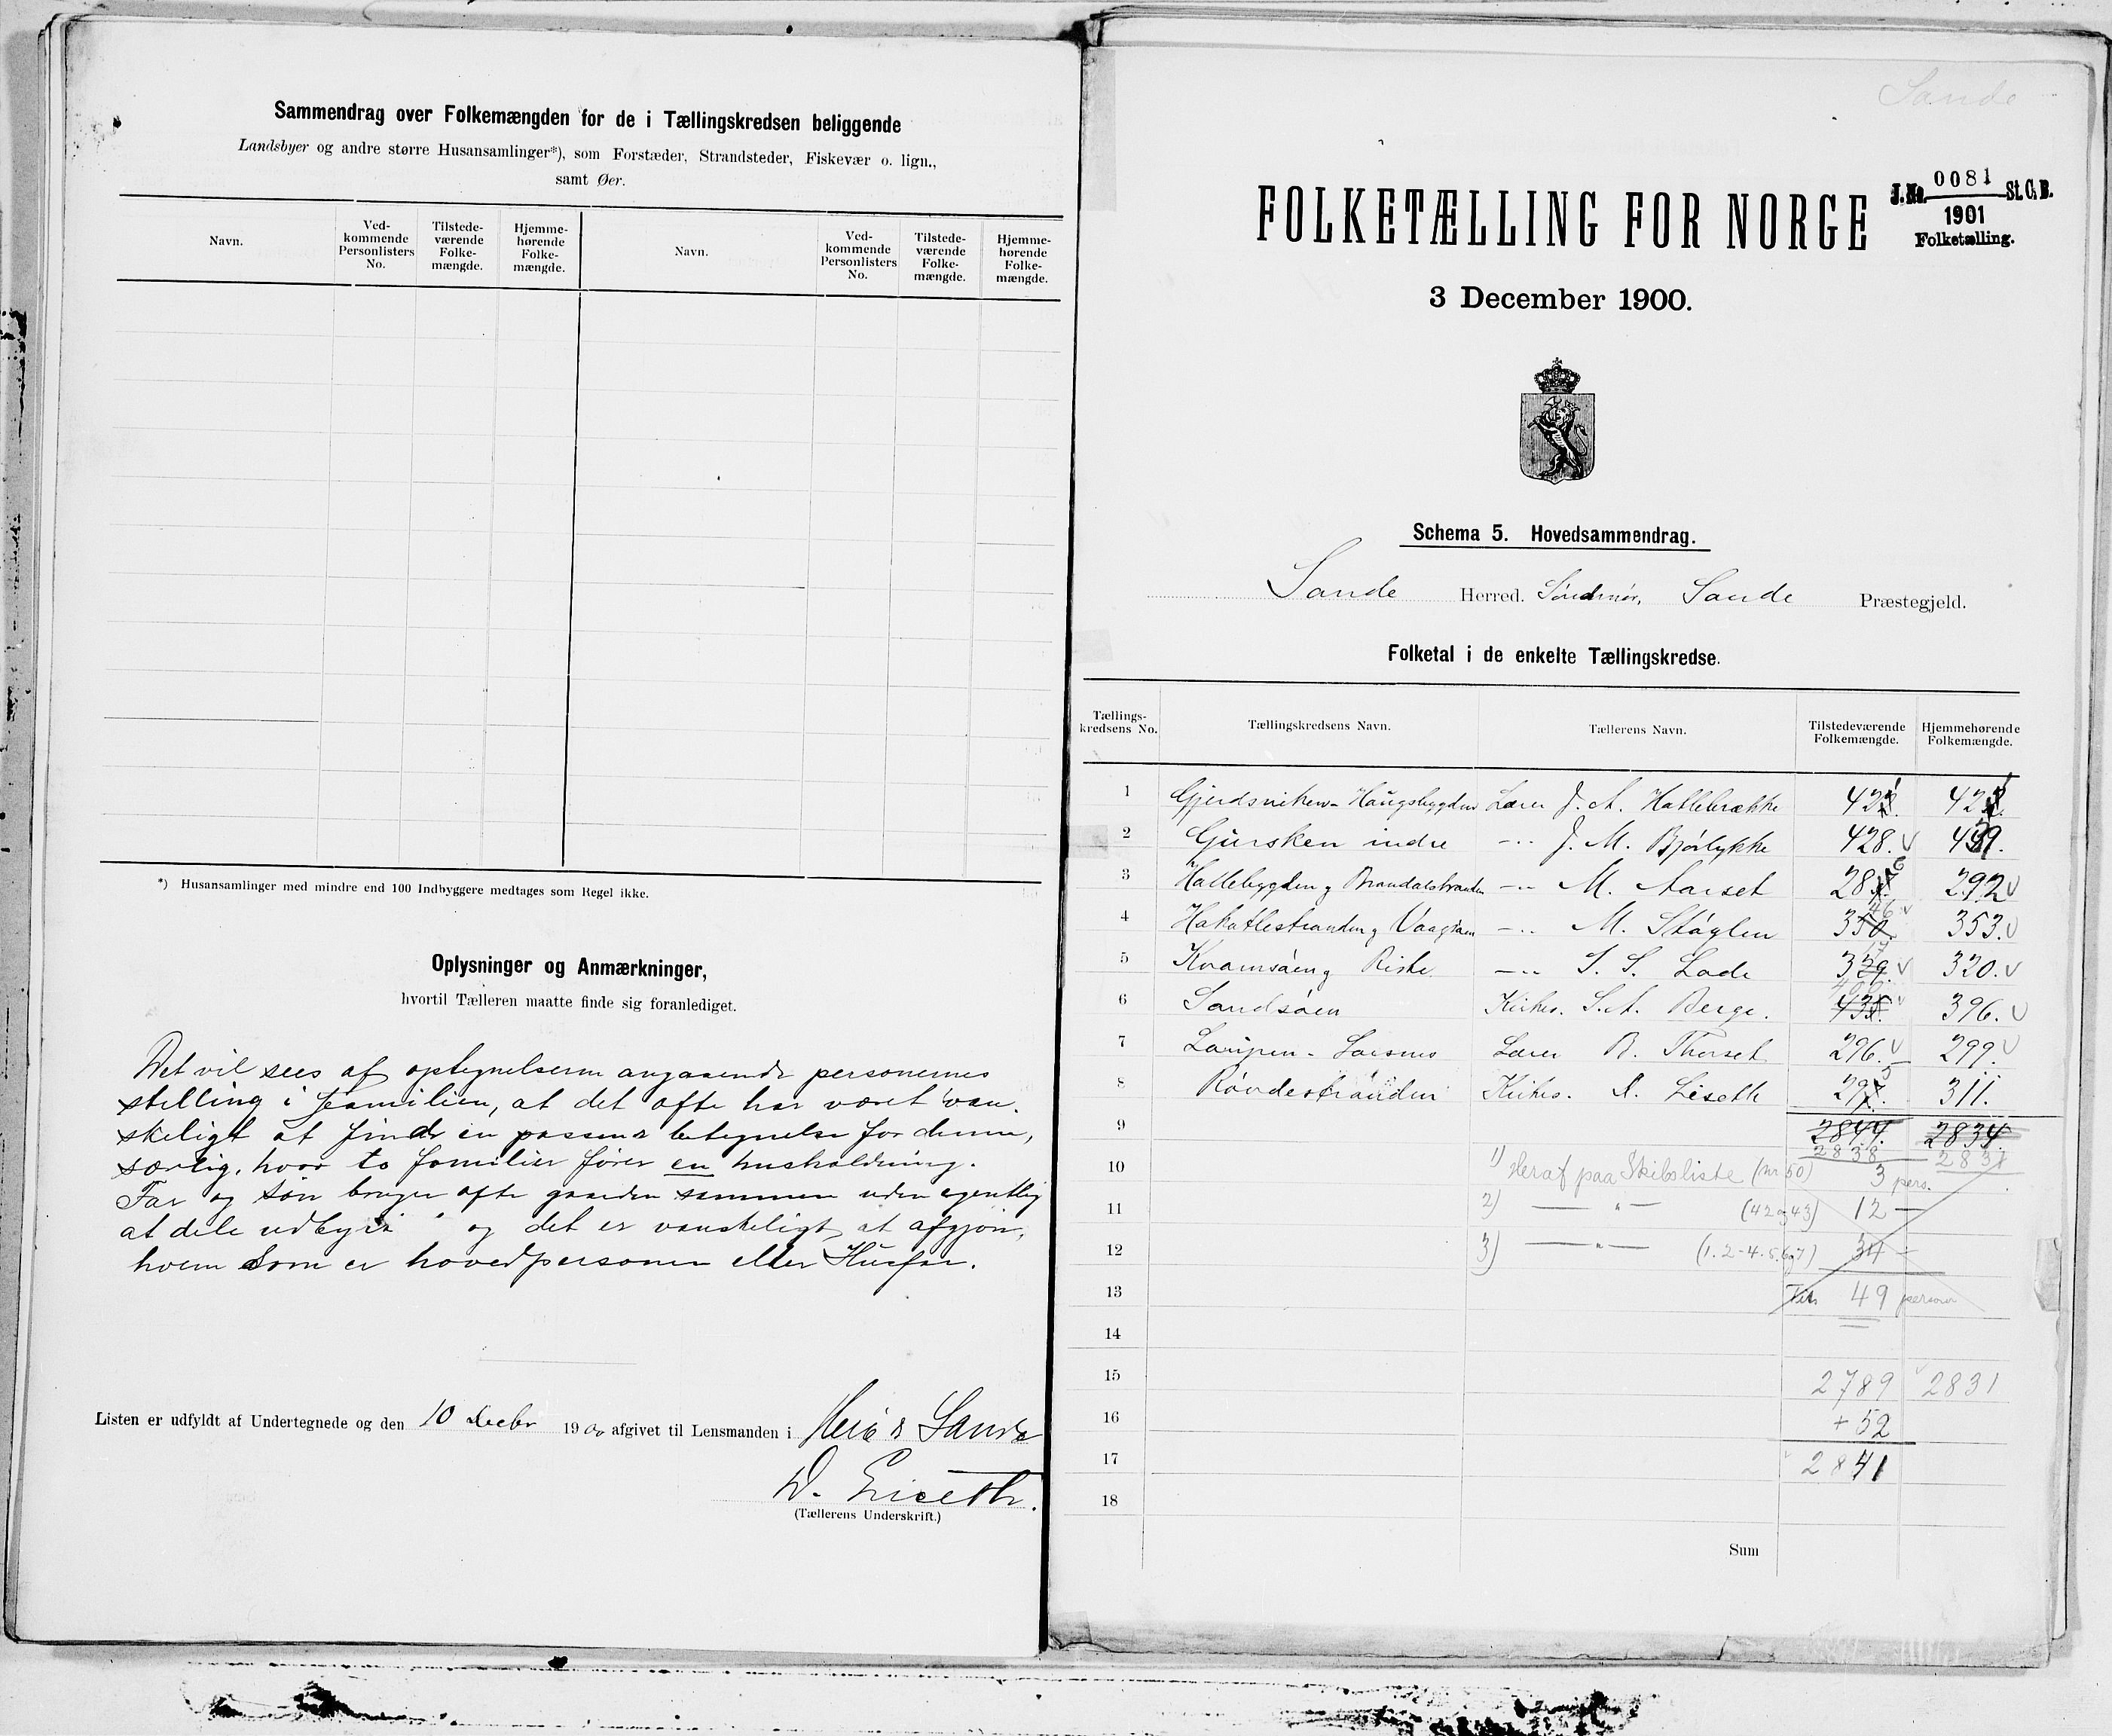 Sammendrag over Folkemængden for de i Tællingskredsen beliggende
Landsbyer og andre større Husansamlinger*), som Forstæder, Strandsteder, Fiskevær o. lign.,
samt Øer.
Navn. Ved-kommende Personlisters No. Tilstede-værende Folke-mængde. Hjemme-hørende Folke-mængde. Navn. Ved-kommende Personlisters No. Tilstede-værende Folke-mængde. Hjemme-hørende Folke-mængde.
*) Husansamlinger med mindre end 100 Indbyggere medtages som Regel ikke.
Oplysninger og Anmærkninger,
hvortil Tælleren maatte finde sig foranlediget.
Det vil sees af optegnelserne angaaende personernes
stilling i familien, at det ofte har været van-
skeligt at finde en passende betegnelse for denne,
særlig, hvor to familier fører en husholdning.
Far og søn bruger ofte gaarden sammen uden egentlig
at dele udbyttet og det er vanskeligt at afgjøre,
hvem som er hovedpersonen eller Husfar.
Listen er udfyldt af Undertegnede og den 10 Decbr 1900 afgivet til Lensmanden i Herø & Sande
(Tællerens Underskrift.)
Sande
J. No. 0081 St. C. B.
1901
Folketælling.
FOLKETÆLLING FOR NORGE
3 December 1900.
Schema 5. Hovedsammendrag.
Sande Herred. Søndmør, Sande Præstegjeld.
Folketal i de enkelte Tællingskredse.
Tællings-kredsens No. Tællingskredsens Navn. Tællerens Navn. Tilstedeværende Folkemængde. Hjemmehørende Folkemængde.
1 Gjerdsviken-Haugsbygden Lærer J. A. Hallebrække 421 421
2 Gursken indre -"- J. M. Bjørlykke 428. 439.
3 Hallebygden og Brandalstranden -"- M. Aarset 286 292
4 Hakallestranden og Vaagsøen -"- M. Støylen 346 353.
5 Kvamsøen og Riste -"- S. S. Lade 317 320.
6 Sandsøen Kirkes. S. A. Berge. 396.
7 Laupen-Larsnes Lærer R. Thorset 296. 299.
8 Røvdestranden Kirkes. D. Eiseth 295 311.
9 2844. 2834
2838 2831
10 1) Heraf paa Skibsliste (nr 50) 3 pers.
11 2) —"— (42 og 43) 12 —
12 3) —"— (1.2-4.5.6 og 7) 34 —
13 49 personer
14
15 2789 2831
16 + 52
17 2841
18
Sum